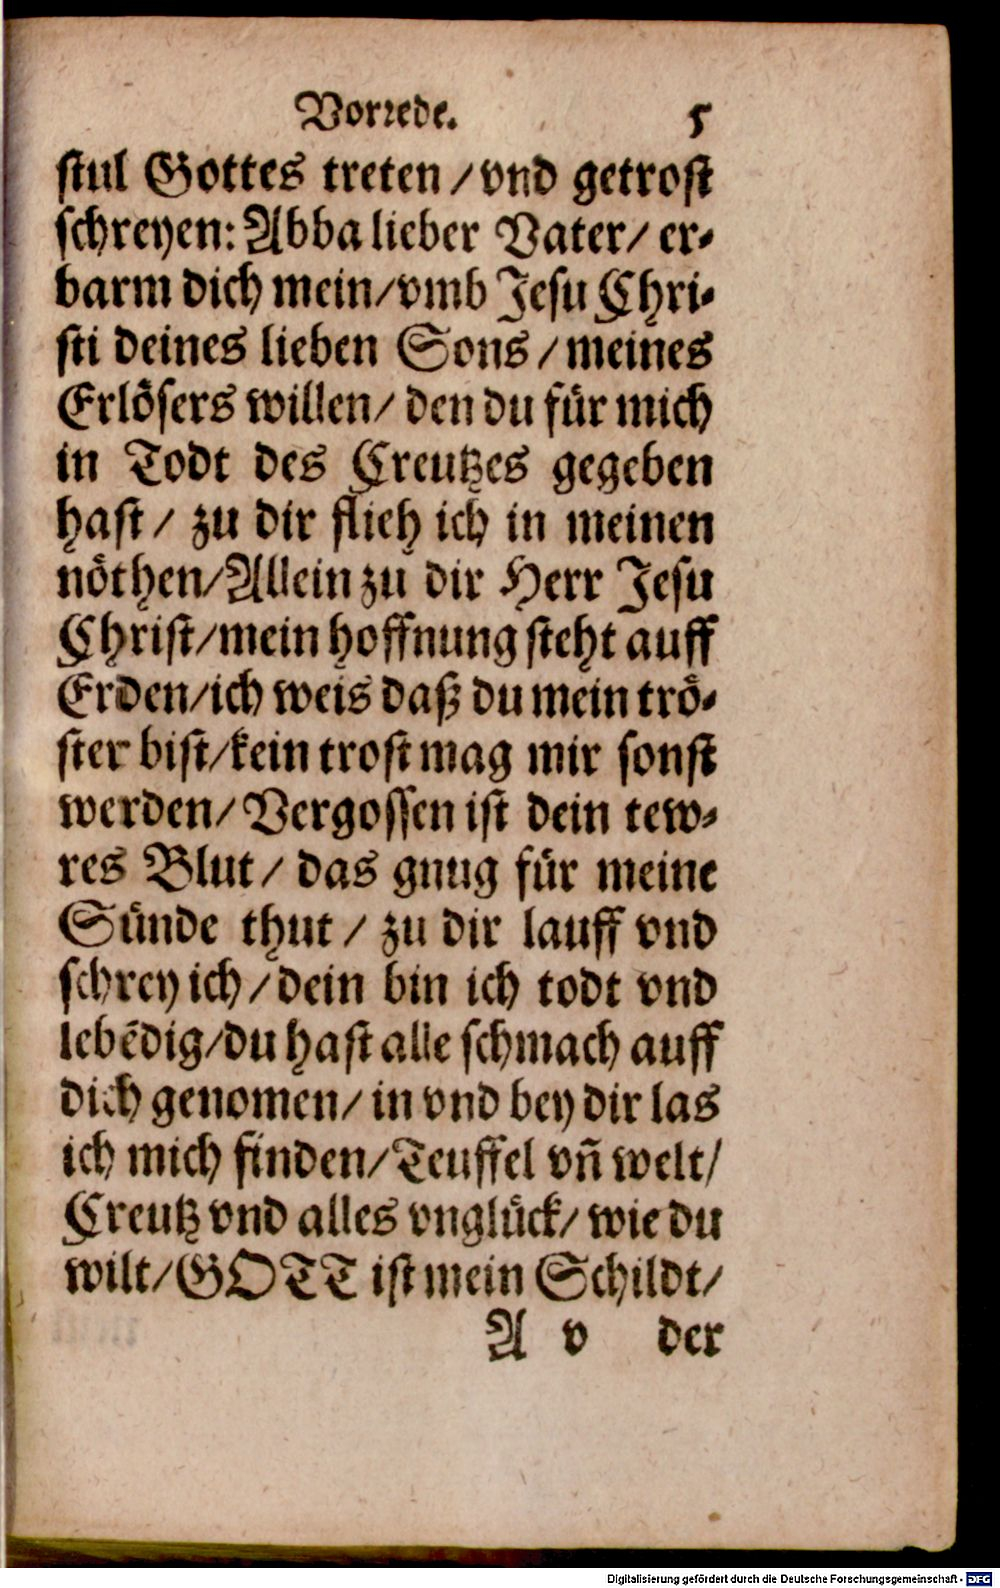 Vorrede. 5
stul Gottes treten / vnd getrost
schreyen: Abba lieber Vater / er-
barm dich mein / vmb Jesu Chri-
sti deines lieben Sons / meines
Erlösers willen / den du für mich
in Todt des Creutzes gegeben
hast / zu dir flieh ich in meinen
nöthen / Allein zu dir Herr Jesu
Christ / mein hoffnung steht auff
Erden / ich weis daß du mein trö-
ster bist / kein trost mag mir sonst
werden / Vergossen ist dein tew-
res Blut / das gnug für meine
Sünde thut / zu dir lauff vnd
schrey ich / dein bin ich todt vnd
lebēdig / du hast alle schmach auff
dich genomen / in vnd bey dir las
ich mich finden / Teuffel vñ welt /
Creutz vnd alles vnglück / wie du
wilt / GOTT ist mein Schildt /
A v der
Digitalisierung gefördert durch die Deutsche Forschungsgemeinschaft - DFG